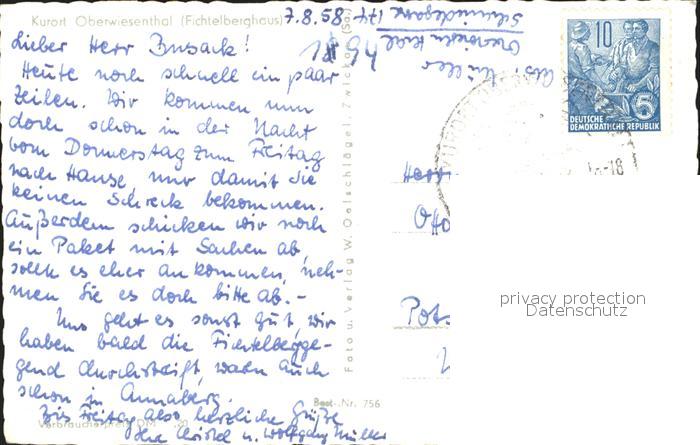 Kurort Oberwiesenthal (Fichtelberghaus)
7.8.58
Lieber Herr Busack!
Heute noch schnell ein paar
Zeilen. Wir kommen nun
doch schon in der Nacht
vom Donnerstag zum Freitag
nach Hause, nur damit Sie
keinen Schreck bekommen.
Außerdem schicken wir noch
ein Paket mit Sachen ab
sollte es eher ankommen, neh-
men Sie es doch bitte ab.-
Uns geht es sonst gut, wir
haben bald die Fichtelbergge-
gend durchstreift, waren auch
schon in Annaberg.
Bis Freitag also herzliche Grüße
Ihre Christel u. Wolfgang Müller
Verbraucherpreis DM
Best.-Nr. 756
Foto u. Verlag W. Oelschlägel, Zwickau (Sa.)
Abs. Müller
Schmiedegasse 174
10
5
DEUTSCHE
DEMOKRATISCHE REPUBLIK
-18
Herrn
Otto
Pots
privacy protection
Datenschutz